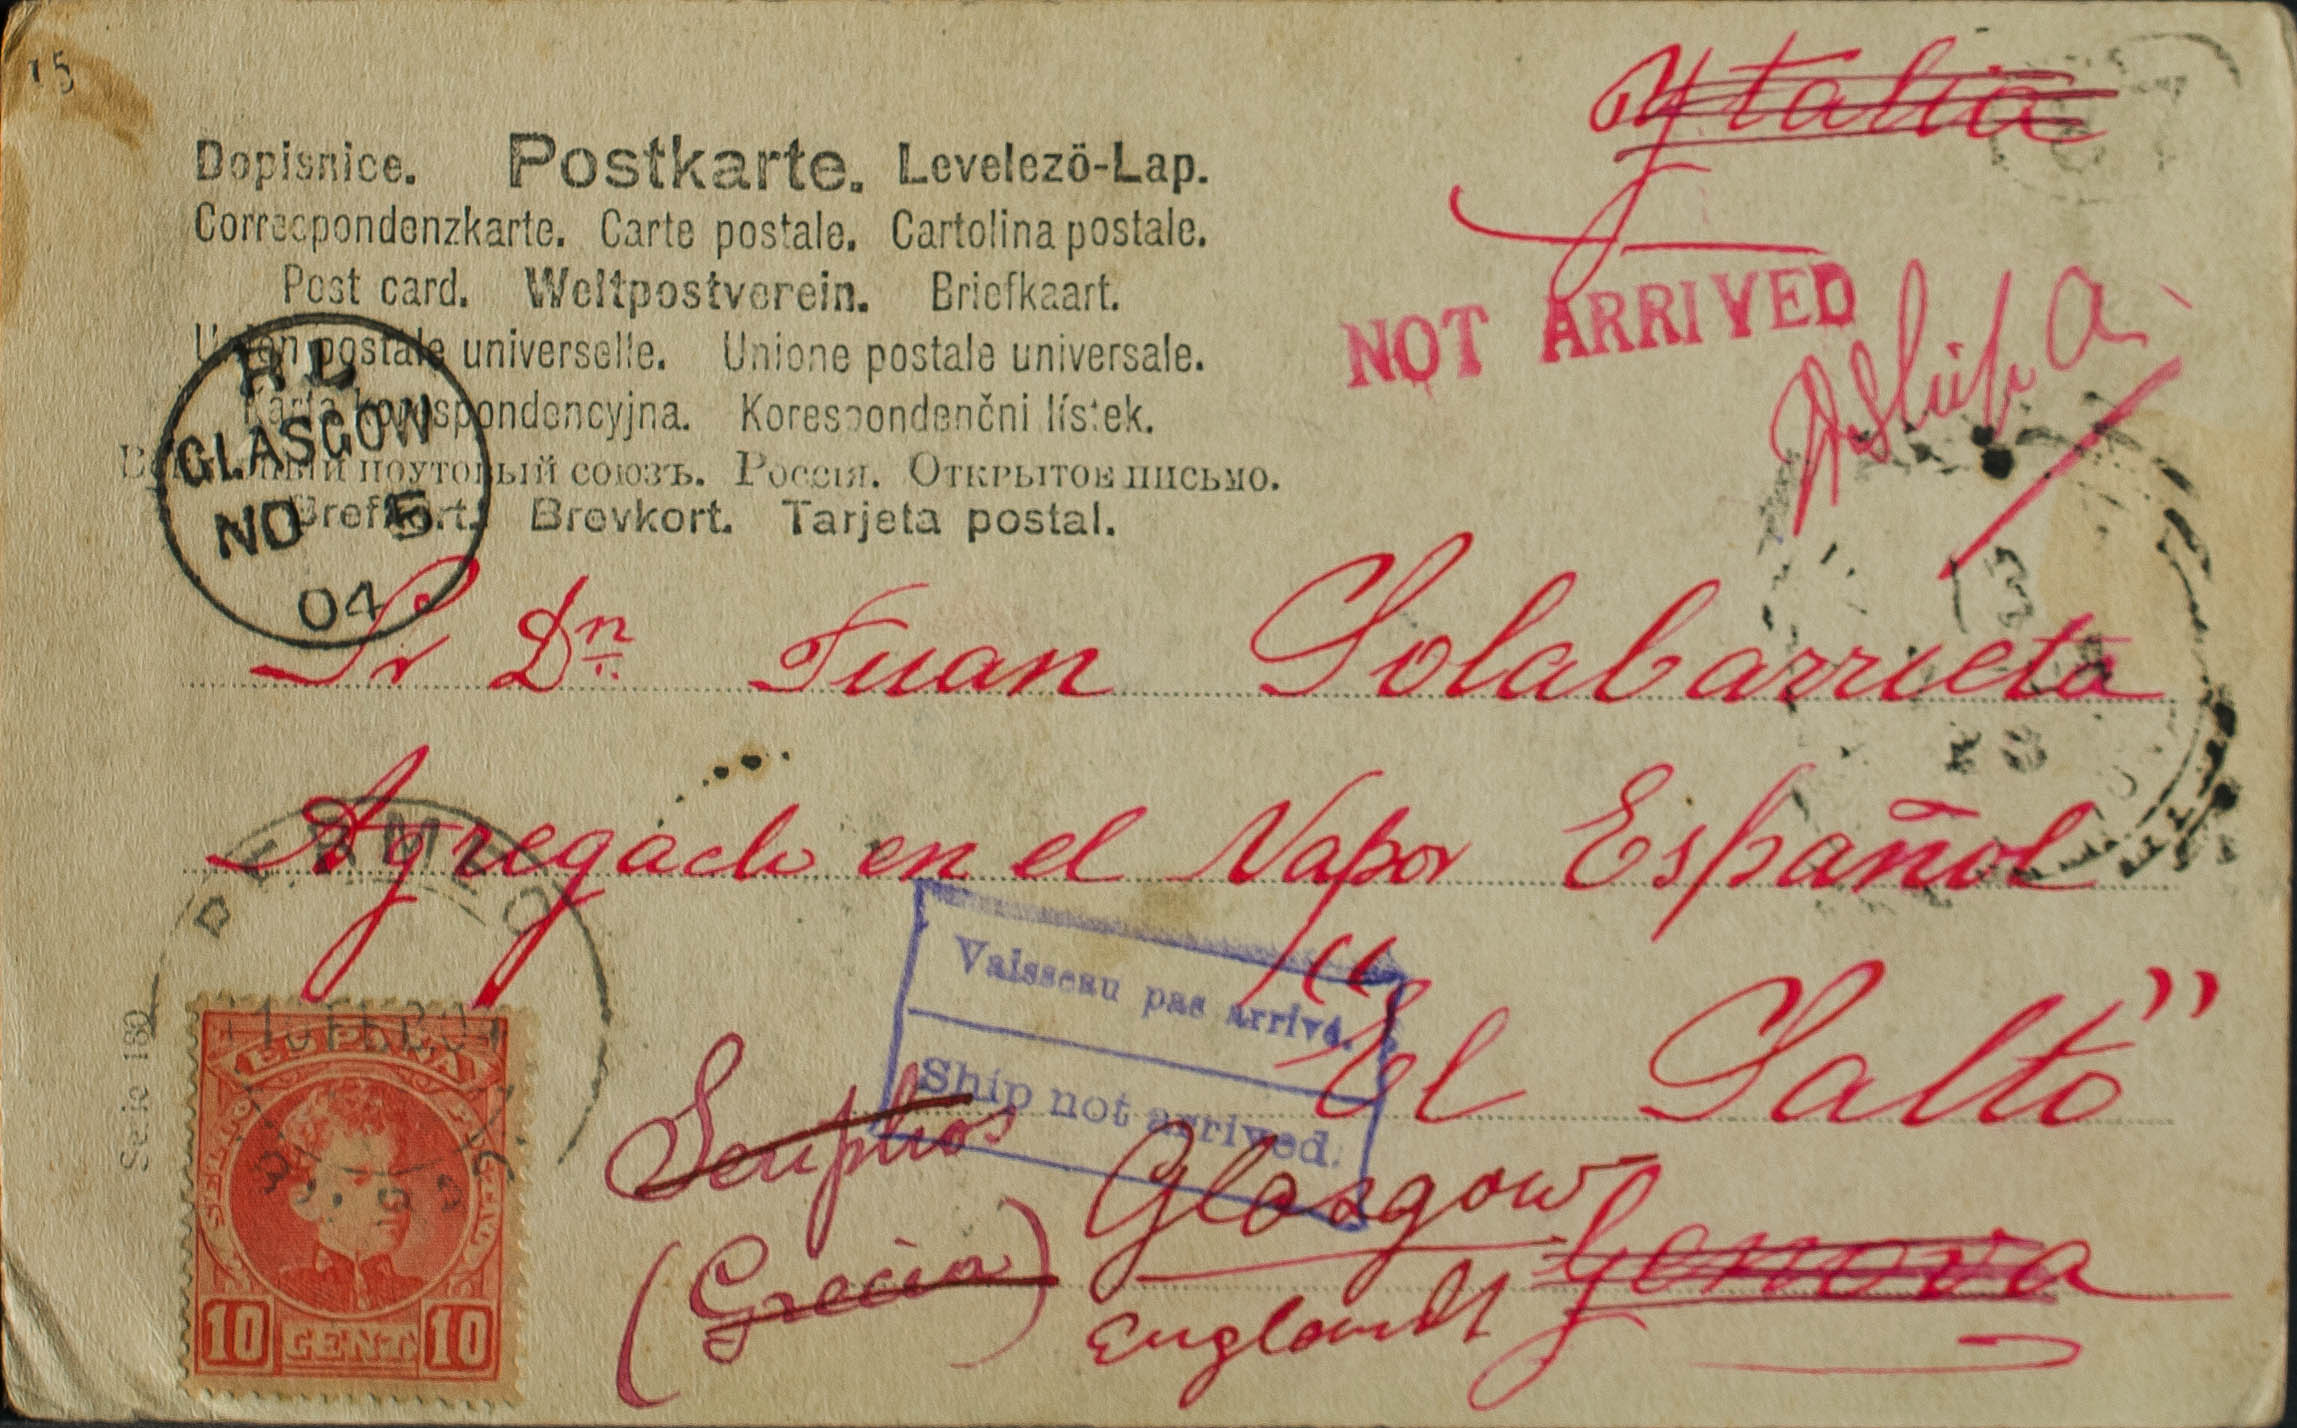 15
Ytalia
Dopisnice. Postkarte. Levelezö-Lap.
Correspondenzkarte. Carte postale. Cartolina postale.
Post card. Weltpostverein. Briefkaart.
Union postale universelle. Unione postale universale.
NOT ARRIVED
Karta korespondencyjna. Korespondenčni lístek.
поутовый союзъ. Россія. Открытое письмо.
Brefkort. Brevkort. Tarjeta postal.
GLASGOW
NO 5
04
Sr Dn. Juan Solabarrieta
Agregado en el Vapor Español
"El Salto"
BERMEO
Vaisseau pas arrivé.
Ship not arrived.
Glasgow
Genova
(Grecia)
England
Serie 180
ESPAÑA
10 CENT. 10